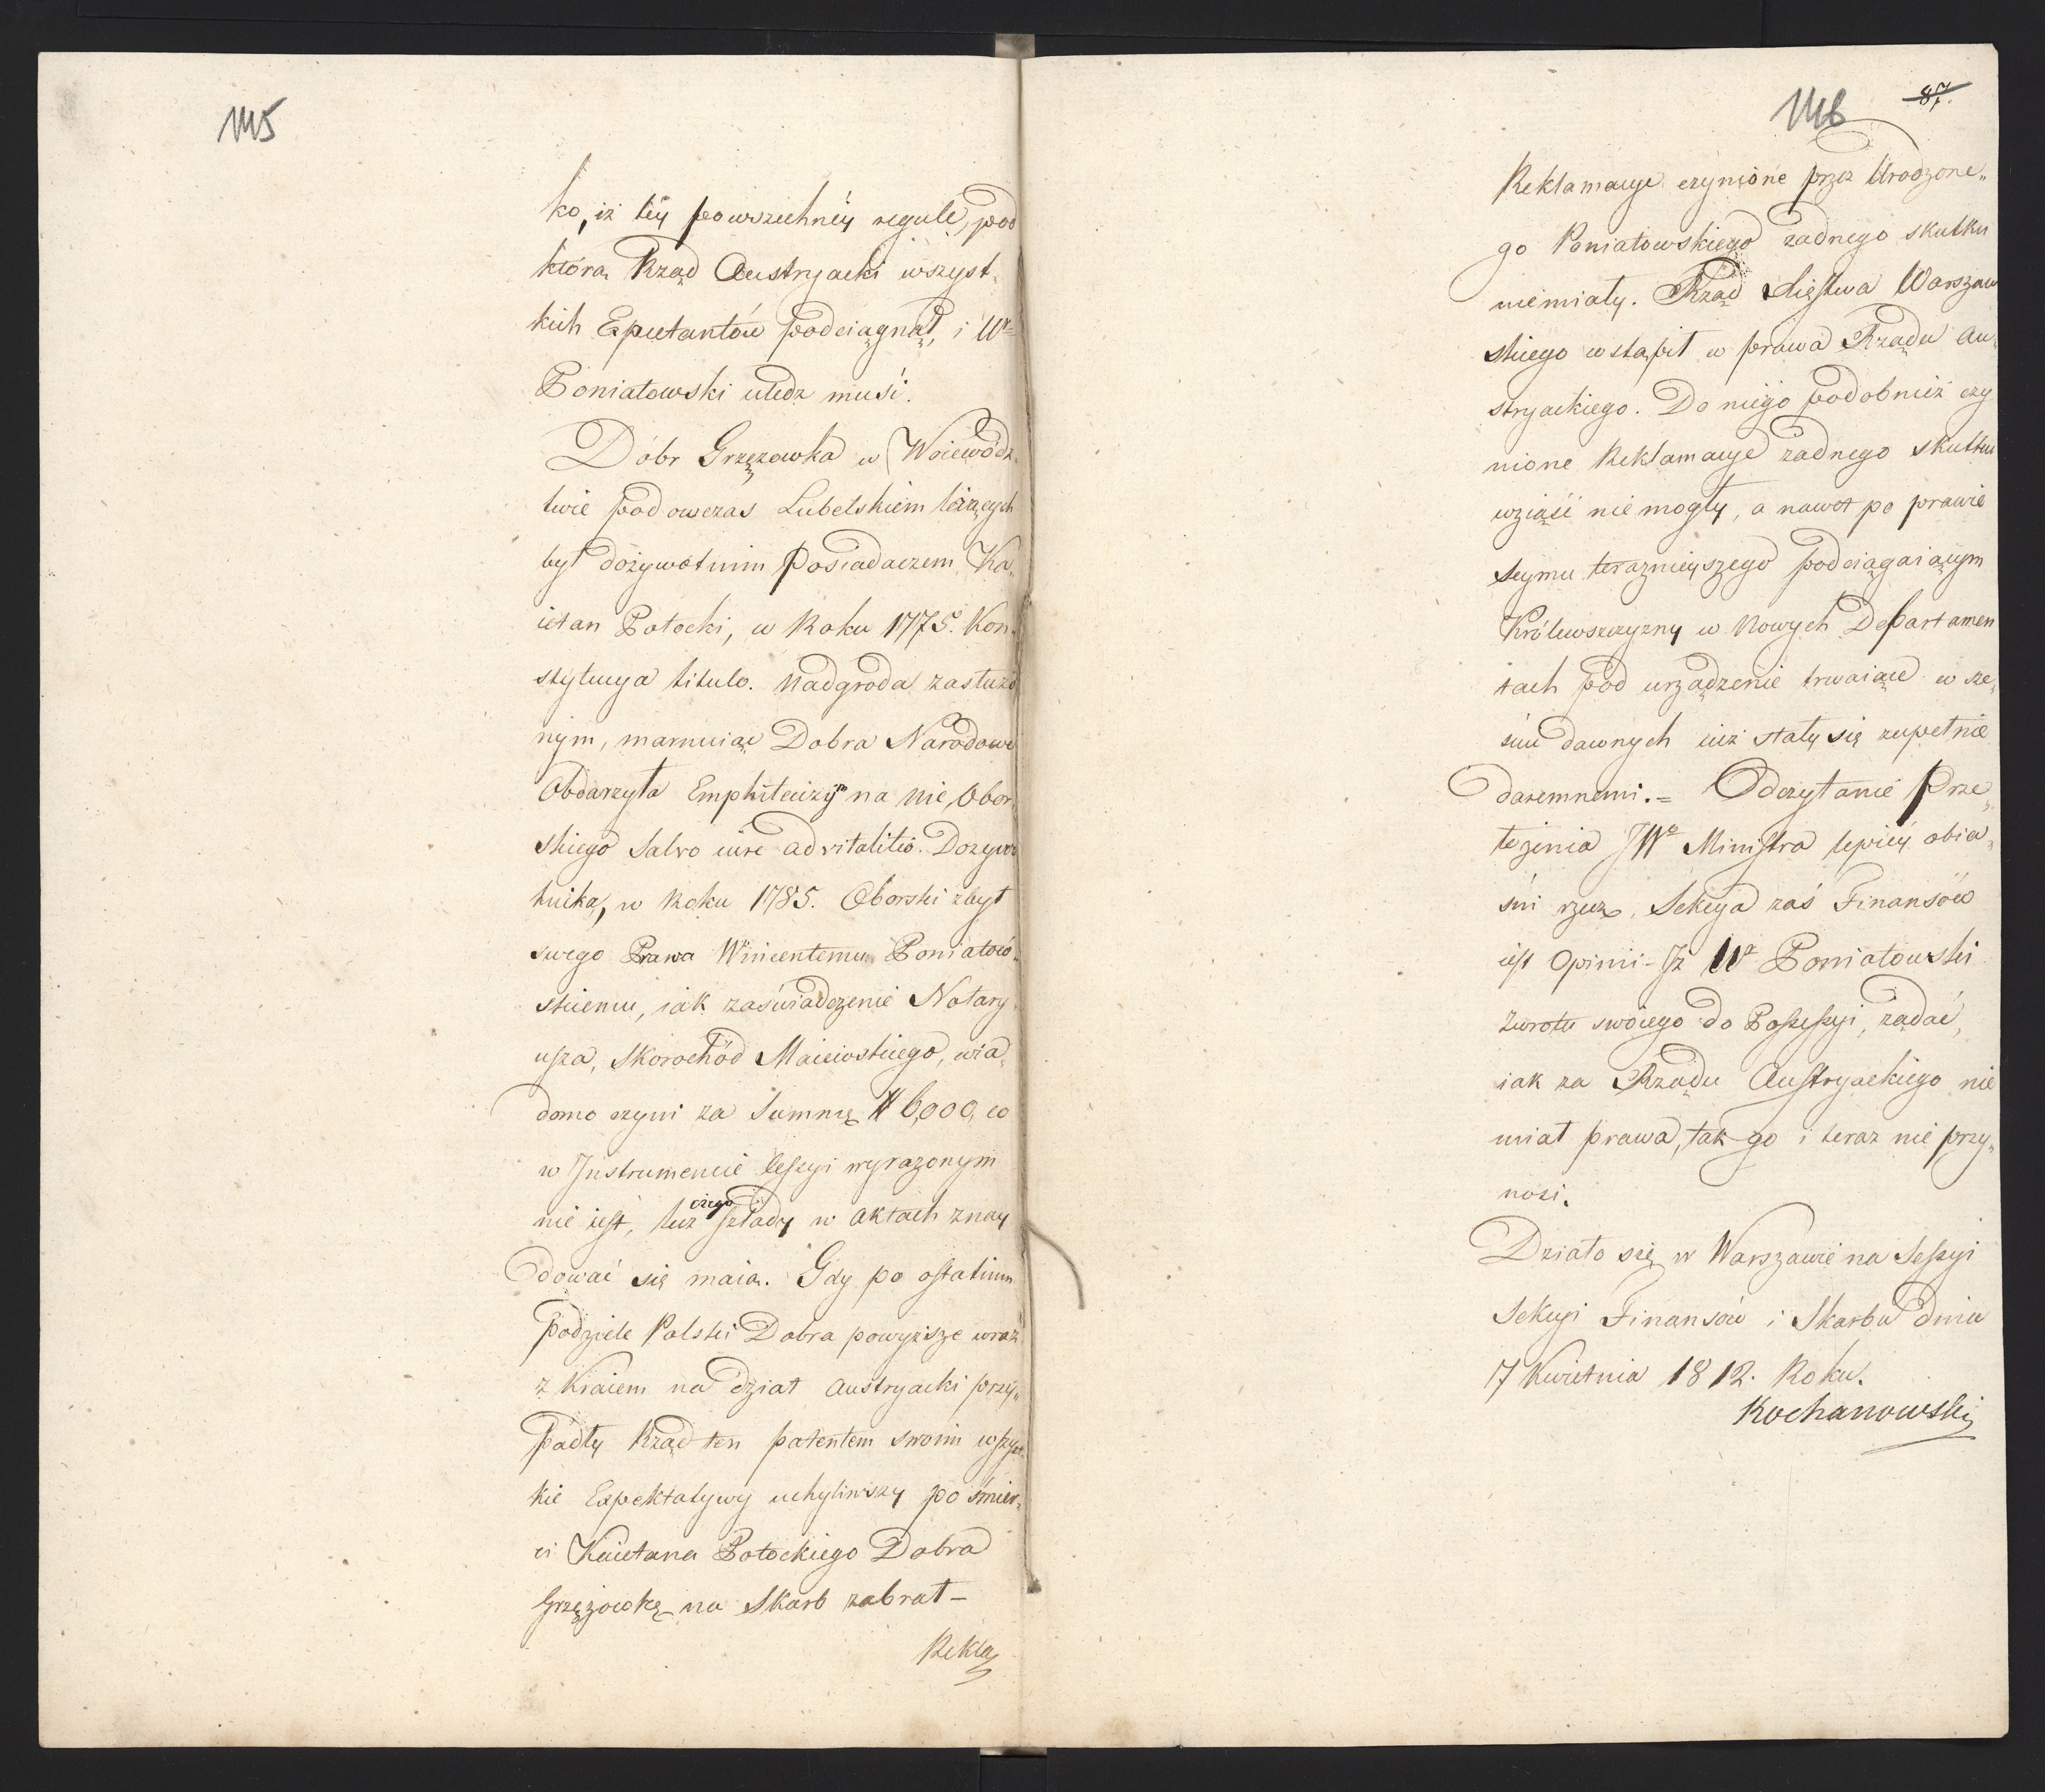 145
ko, iż téy powszechnéy regule, pod
którą Rząd Austryacki wszyst-
kich Expectantów podciągnął, i Ur
Poniatowski uledz musi.
Dóbr Grzęzowka w Woiewódz-
twie podowczas Lubelskiem leżących
był dożywotnim Posiadaczem Ka-
ietan Potocki, w Roku 1775. Kon-
stytucya titulo. Nadgroda zasłużo
nym, marnuiąc Dobra Narodowe
Obdarzyła Emphiteuzyą na nie, Obor-
skiego Salvo iure advitalitio. Dożywo
tnika, w Roku 1785. Oborski zbył
swego Prawa Wincentemu Poniatow-
skiemu, iak zaświadczenie Notary-
usza, Skorochód Maiewskiego, wia-
domo czyni za Summę # 6,000, co
w Instrumencie Cessyi wyrażonym
nie iest, lecz czego szlady w Aktach znay
dować się maią. Gdy po ostatnim
podziele Polski Dobra powyższe wraz
z Kraiem na dział Austryacki przy-
padły Rząd ten patentem swoim wszyst-
kie Expektatywy uchyliwszy po śmier-
ci Kaietana Potockiego Dobra
Grzęzowkę na Skarb zabrał-
Rekla
146 87.
Reklamacye czynione przez Urodzone-
go Poniatowskiego żadnego skutku
niemiały. Rząd Xięstwa Warszaw
skiego wstąpił w prawa Rządu Au-
stryackiego. Do niego podobnież czy
nione Reklamacye żadnego skutku
wziąść nie mogły, a nawet po prawie
Seymu teraznieyszego podciągaiącym
Królewszczyzny w Nowych Departamen
tach pod urządzenie trwaiące w sze-
ściu dawnych iuż stały się zupełnie
daremnemi.= Odczytanie Prze-
łożenia JWo Ministra lepiéy obia-
śni rzecz, Sekcya zaś Finansów
iest Opinii - Iż Ur Poniatowski
zwrotu swoiego do Possessyi, żądać,
iak za Rządu Austryackiego nie
miał prawa, tak go i teraz nie przy-
nosi.
Działo się w Warszawie na Sessyi
Sekcyi Finansów i Skarbu dnia
7 Kwietnia 1812. Roku.
Kochanowski